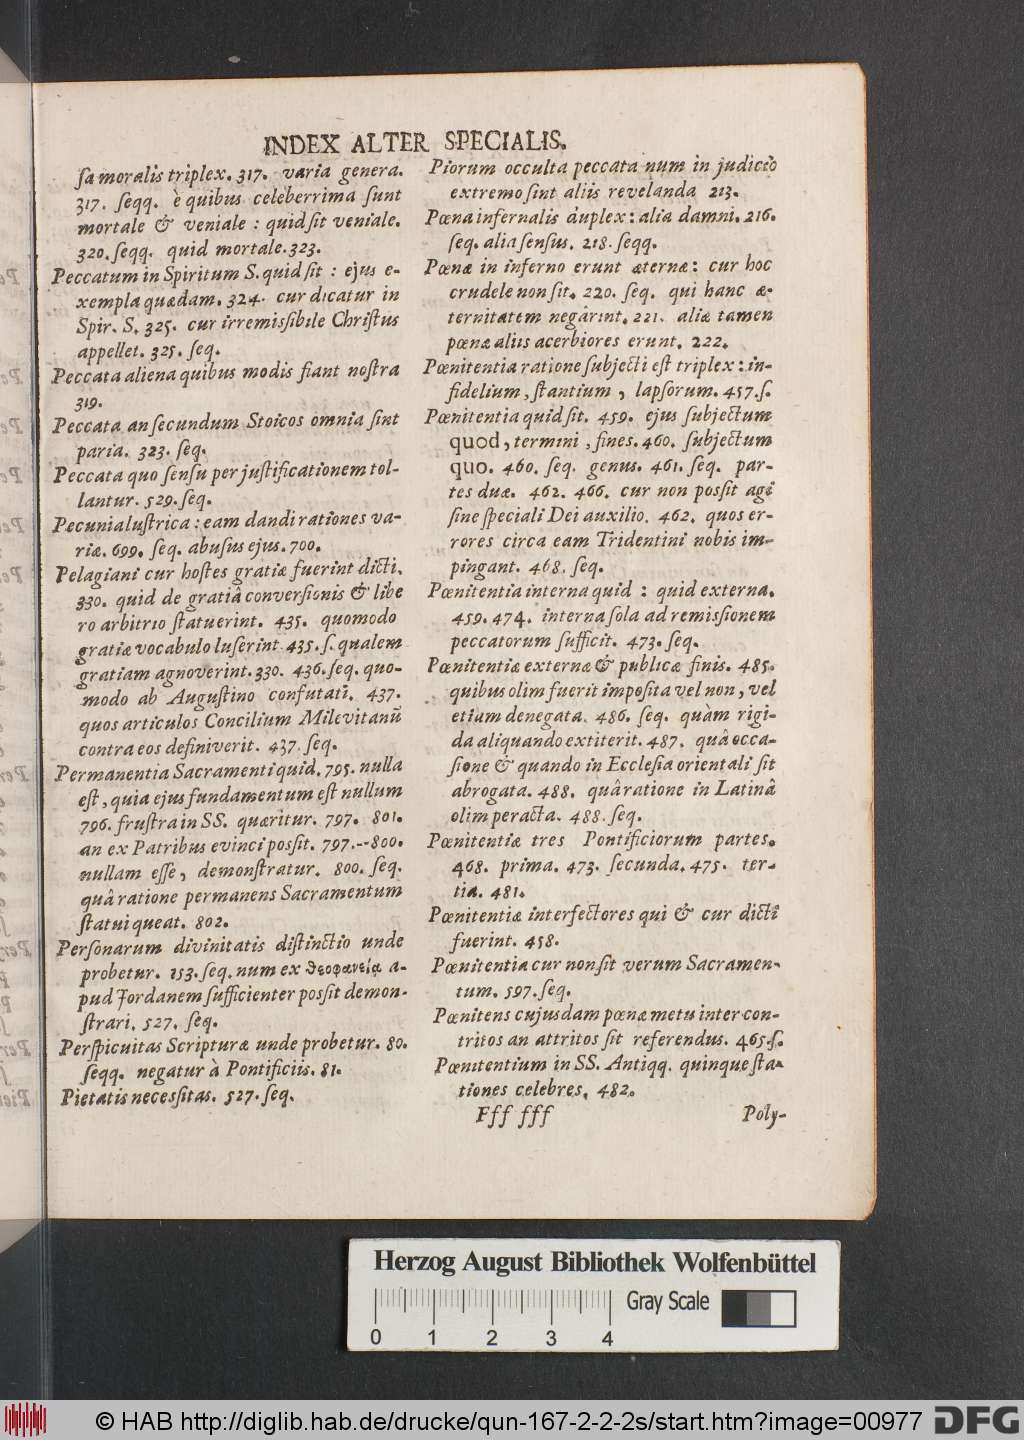 INDEX ALTER SPECIALIS.
sa moralis triplex. 317. varia genera.
317. seqq. è quibus celeberrima sunt
mortale & veniale : quid sit veniale.
320. seqq. quid mortale. 323.
Peccatum in Spiritum S. quid sit : ejus e-
xempla quædam. 324. cur dicatur in
Spir. S. 325. cur irremissibile Christus
appellet. 325. seq.
Peccata aliena quibus modis fiant nostra
319.
Peccata an secundum Stoicos omnia sint
paria. 323. seq.
Peccata quo sensu per justificationem tol-
lantur. 529. seq.
Pecunia lustrica : eam dandi rationes va-
riæ. 699. seq. abusus ejus. 700.
Pelagiani cur hostes gratiæ fuerint dicti.
330. quid de gratiâ conversionis & libe
ro arbitrio statuerint. 435. quomodo
gratiæ vocabulo luserint 435. s. qualem
gratiam agnoverint. 330. 436. seq. quo-
modo ab Augustino confutati. 437.
quos articulos Concilium Milevitanũ
contra eos definiverit. 437. seq.
Permanentia Sacramenti quid. 795. nulla
est, quia ejus fundamentum est nullum
796. frustra in SS. quæritur. 797. 801.
an ex Patribus evinci possit. 797.--800.
nullam esse, demonstratur. 800. seq.
quâ ratione permanens Sacramentum
statui queat. 802.
Personarum divinitatis distinctio unde
probetur. 153. seq. num ex θεοφανείᾳ a-
pud Jordanem sufficienter possit demon-
strari. 527. seq.
Perspicuitas Scripturæ unde probetur. 80.
seqq. negatur à Pontificiis. 81.
Pietatis necessitas. 527. seq.
Piorum occulta peccata num in judicio
extremo sint aliis revelanda 213.
Pœna infernalis duplex : alia damni. 216.
seq. alia sensus. 218. seqq.
Pœnæ in inferno erunt æternæ : cur hoc
crudele non sit. 220. seq. qui hanc æ-
ternitatem negârint. 221. aliæ tamen
pœnæ aliis acerbiores erunt. 222.
Pœnitentia ratione subjecti est triplex : in-
fidelium, stantium, lapsorum. 457. s.
Pœnitentia quid sit. 459. ejus subjectum
quod, termini, fines. 460. subjectum
quo. 460. seq. genus. 461. seq. par-
tes duæ. 462. 466. cur non possit agi
sine speciali Dei auxilio. 462. quos er-
rores circa eam Tridentini nobis im-
pingant. 468. seq.
Pœnitentia interna quid : quid externa.
459. 474. interna sola ad remissionem
peccatorum sufficit. 473. seq.
Pœnitentiæ externæ & publicæ finis. 485.
quibus olim fuerit imposita vel non, vel
etiam denegata. 486. seq. quàm rigi-
da aliquando extiterit. 487. quâ occa-
sione & quando in Ecclesia orientali sit
abrogata. 488. quâ ratione in Latinâ
olim peracta. 488. seq.
Pœnitentiæ tres Pontificiorum partes.
468. prima. 473. secunda. 475. ter-
tia. 481.
Pœnitentiæ interfectores qui & cur dicti
fuerint. 458.
Pœnitentia cur non sit verum Sacramen-
tum. 597. seq.
Pœnitens cujusdam pœnæ metu inter con-
tritos an attritos sit referendus. 465. s.
Pœnitentium in SS. Antiqq. quinque sta-
tiones celebres. 482.
Fff fff
Poly-
Herzog August Bibliothek Wolfenbüttel
Gray Scale
0 1 2 3 4
© HAB http://diglib.hab.de/drucke/qun-167-2-2-2s/start.htm?image=00977
DFG